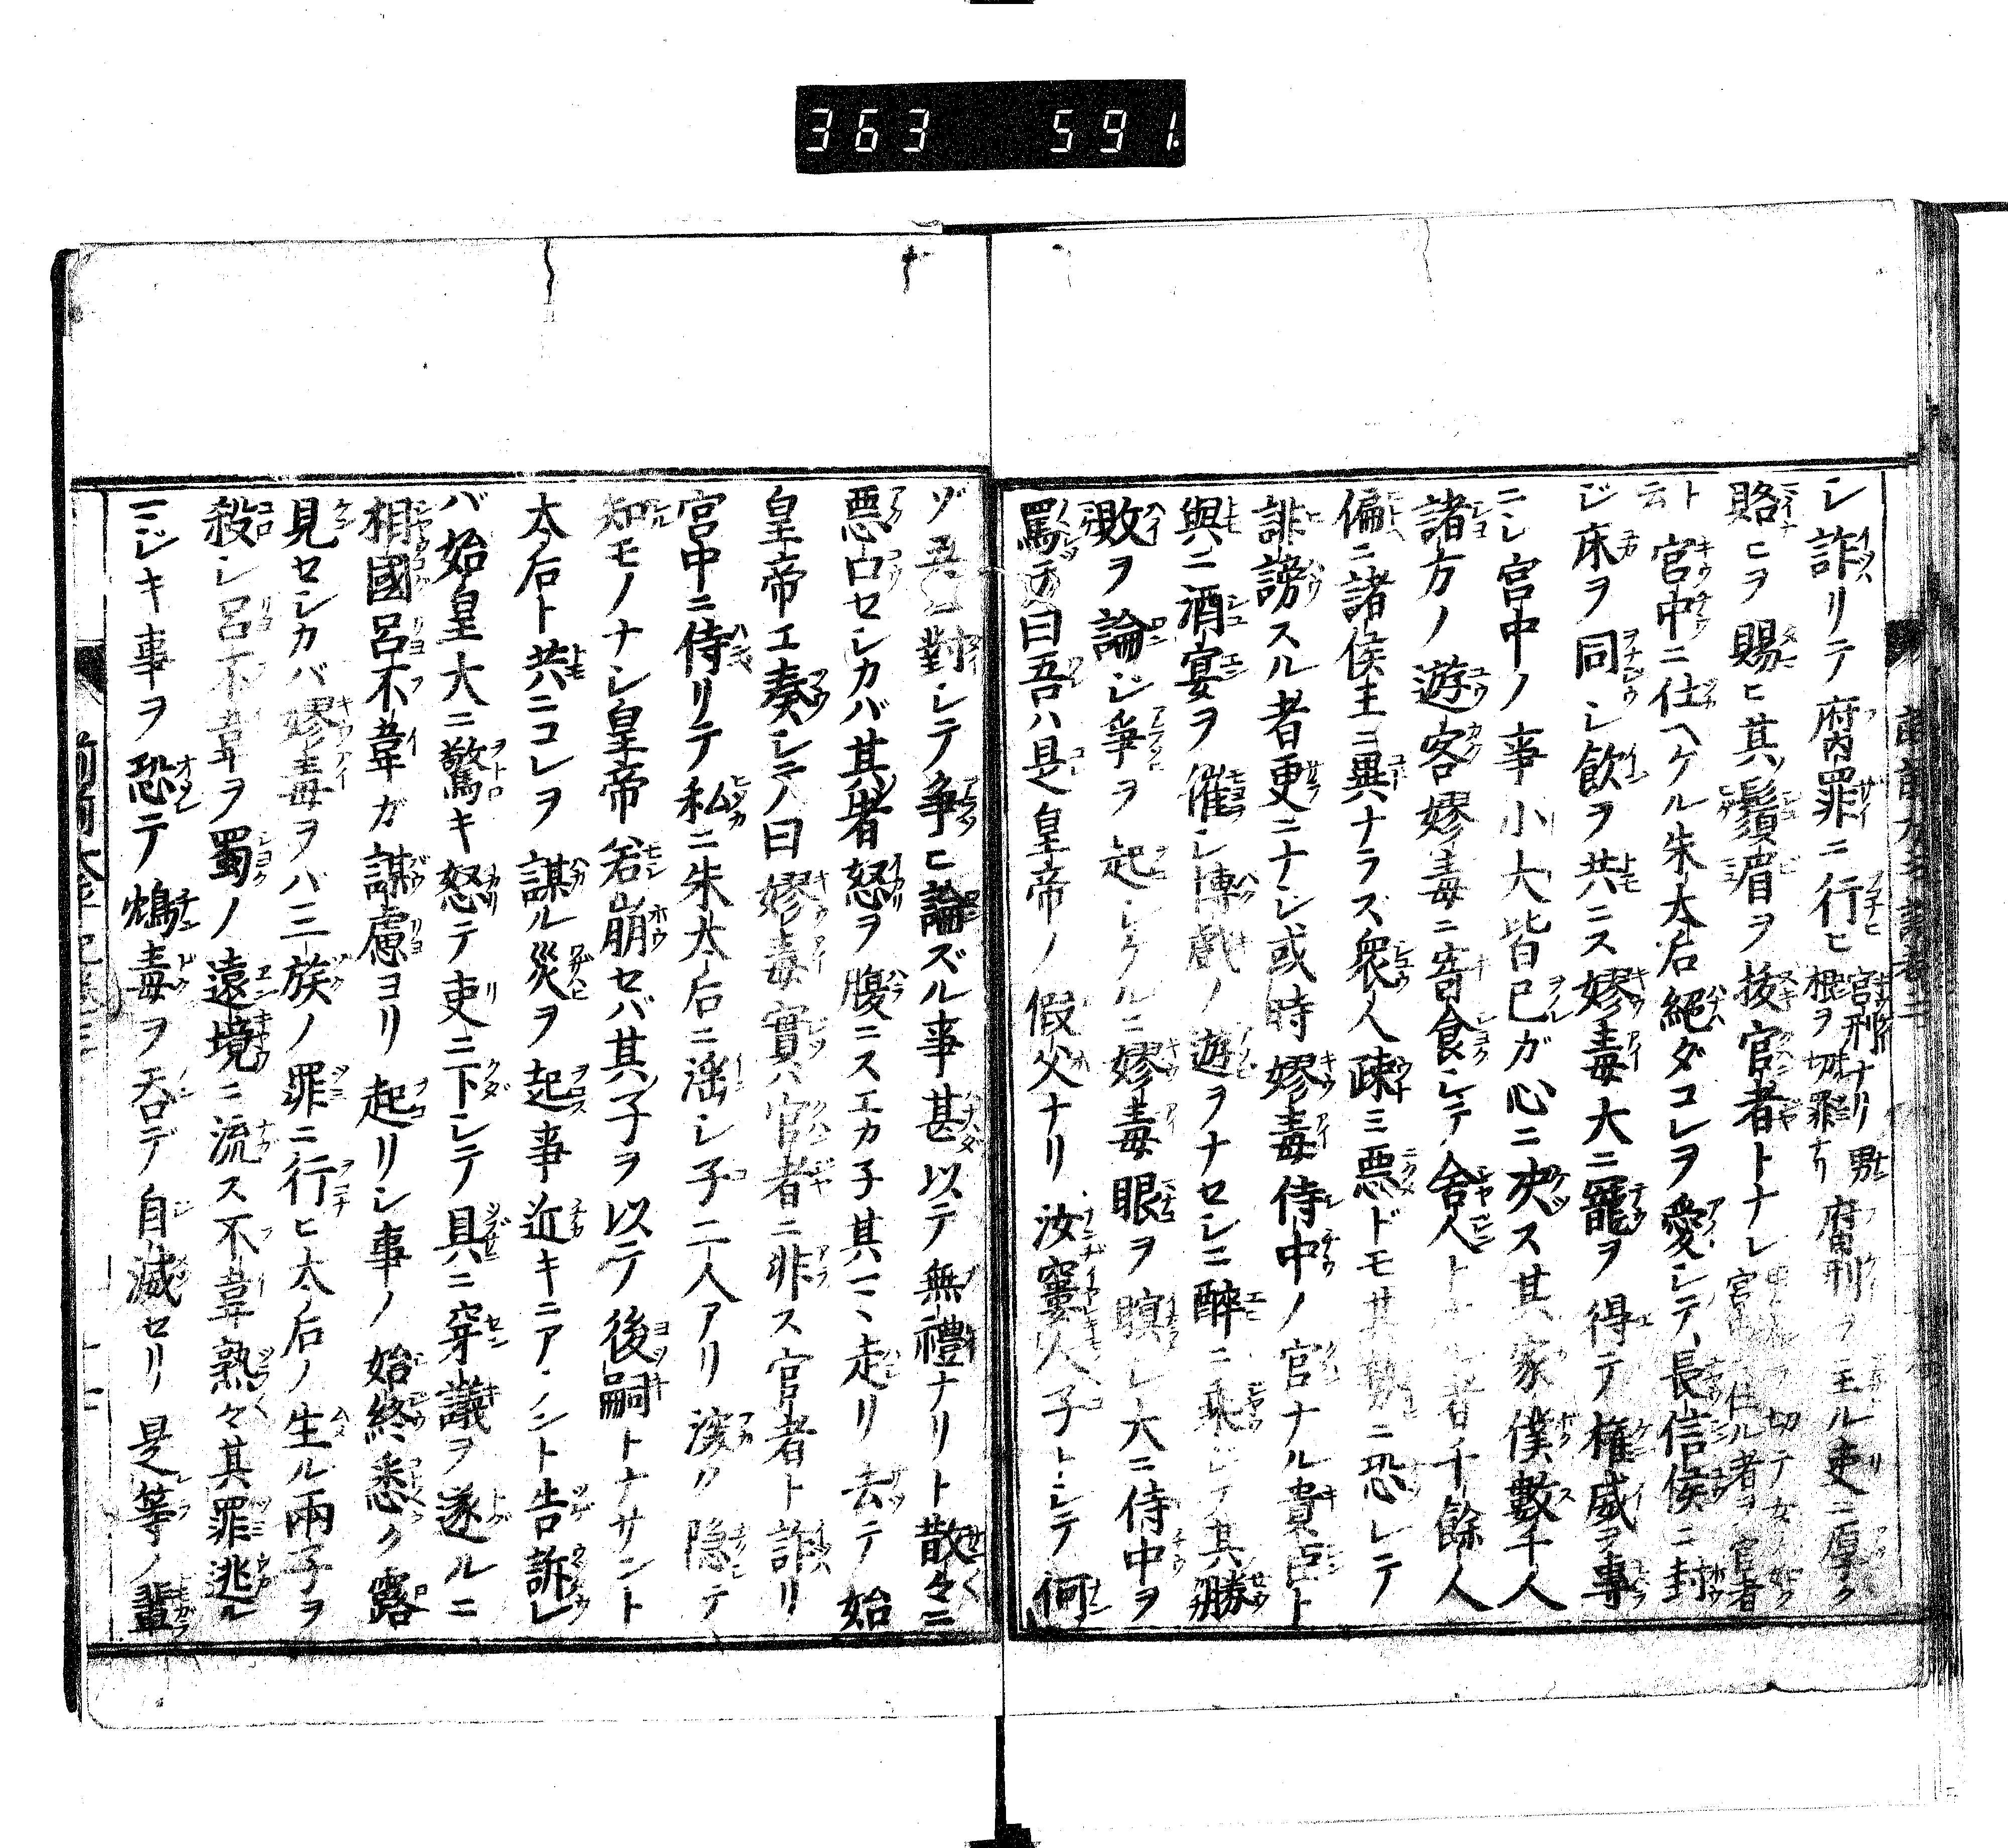 363 591
シ詐リテ腐罪ニ行ヒ宮刑ナリ男根ヲ切罪ナリ腐刑ヲ主ル吏ニ厚ク
賂ヒヲ賜ヒ其鬚眉ヲ抜官者トナシ切テ女ノ如ク仕ル者ヲ官者
ト云宮中ニ仕ヘケル朱太后絕ダコレヲ愛シテ長信侯ニ封
ジ床ヲ同シ飲ヲ共ニス嫪毐大ニ寵ヲ得テ権威ヲ專
ニシ宮中ノ事小大皆已ガ心ニ决ス其家僕數千人
諸方ノ遊客嫪毐ニ寄食シテ舎人ト者千餘人
偏ニ諸侯王ニ異ナラズ衆人疎ミ惡ドモ其勢ニ恐レテ
誹謗スル者更ニナシ或時嫪毐侍中ノ官ナル貴臣ト
興ニ酒宴ヲ催シ博戯ノ遊ヲナセシニ醉ニ乘ジテ其勝
敗ヲ論ジ爭ヲ起シケルニ嫪毐眼ヲ瞋シ大ニ侍中ヲ
罵テ曰吾ハ是皇帝ノ假父ナリ汝窶人子トシテ何
ゾ吾ニ對シテ争ヒ論ズル事甚以テ無禮ナリト散々ニ
惡口セシカバ其者怒ヲ腹ニスエカ子其ヽ走リ去テ始
皇帝エ奏シテ曰嫪毐實ハ官者ニ非ス官者ト詐リ
宮中ニ侍リテ私ニ朱太后ニ滛シ子二人アリ深ク隠テ
知モノナシ皇帝若崩セバ其子ヲ以テ後嗣トナサント
太后ト共ニコレヲ謀ル災ヲ起事近キニアンント告訴レ
バ始皇大ニ驚キ怒テ吏ニ下シテ具ニ穿議ヲ遂ルニ
相國呂不韋ガ謀慮ヨリ起リシ事ノ始終悉ク露
見セシカバ嫪毐ヲバ三族ノ罪ニ行ヒ太后ノ生ル兩子ヲ
殺シ呂不韋ヲ蜀ノ遠境ニ流ス不韋熟々其罪逃ル
ジキ事ヲ恐テ鴆毒ヲ呑デ自滅セリ是等ノ輩